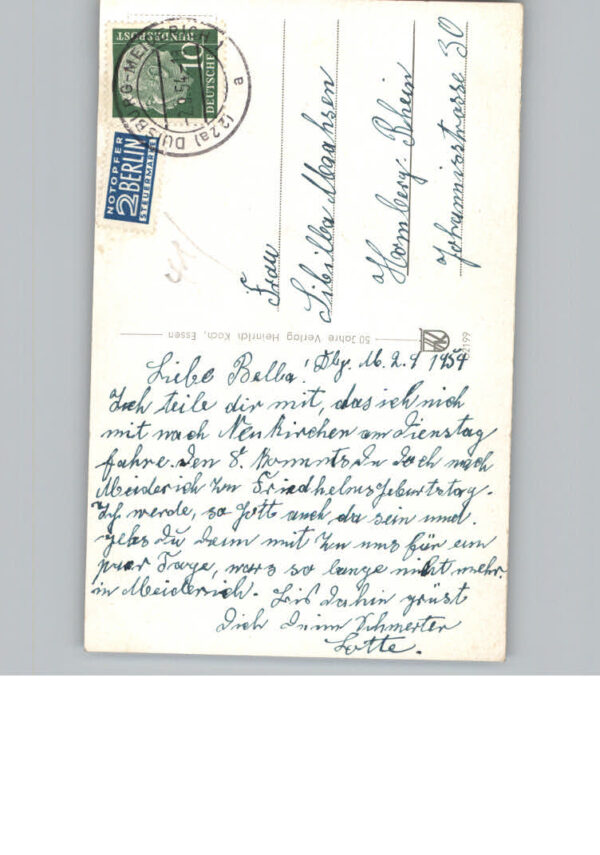 DEUTSCHE
BUNDESPOST
10
(22a) DUISBURG-MEIDERICH 1
a
NOTOPFER
2 BERLIN
STEUERMARKE
Frau
Sibilla Maahsen
Homberg. Rhein
Johannisstrasse 30
50 Jahre Verlag Heinrich Koch, Essen
Dbg. M. 2. 9 1954
Liebe Bella!
Ich teile dir mit, das ich nich
mit nach Neukirchen am Dienstag
fahre. Den 8. kommts Du doch nach
Meiderich zu Friedhelms Geburtstag.
Ich werde, so Gott auch da sein und.
gehs Du dann mit zu uns für ein
paar Tage, wars so lange nicht mehr.
in Meiderich. Bis dahin grüst
Dich Deine Schwester
Lotte.